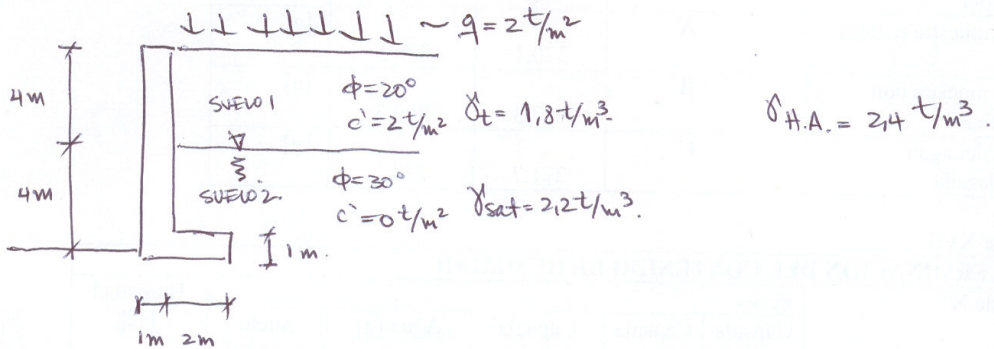 q = 2 t/m²
4m
SUELO 1
ϕ = 20°
c' = 2 t/m²
γt = 1,8 t/m³
γH.A. = 2,4 t/m³.
4m
SUELO 2.
ϕ = 30°
c' = 0 t/m²
γsat = 2,2 t/m³.
1m.
1m 2m